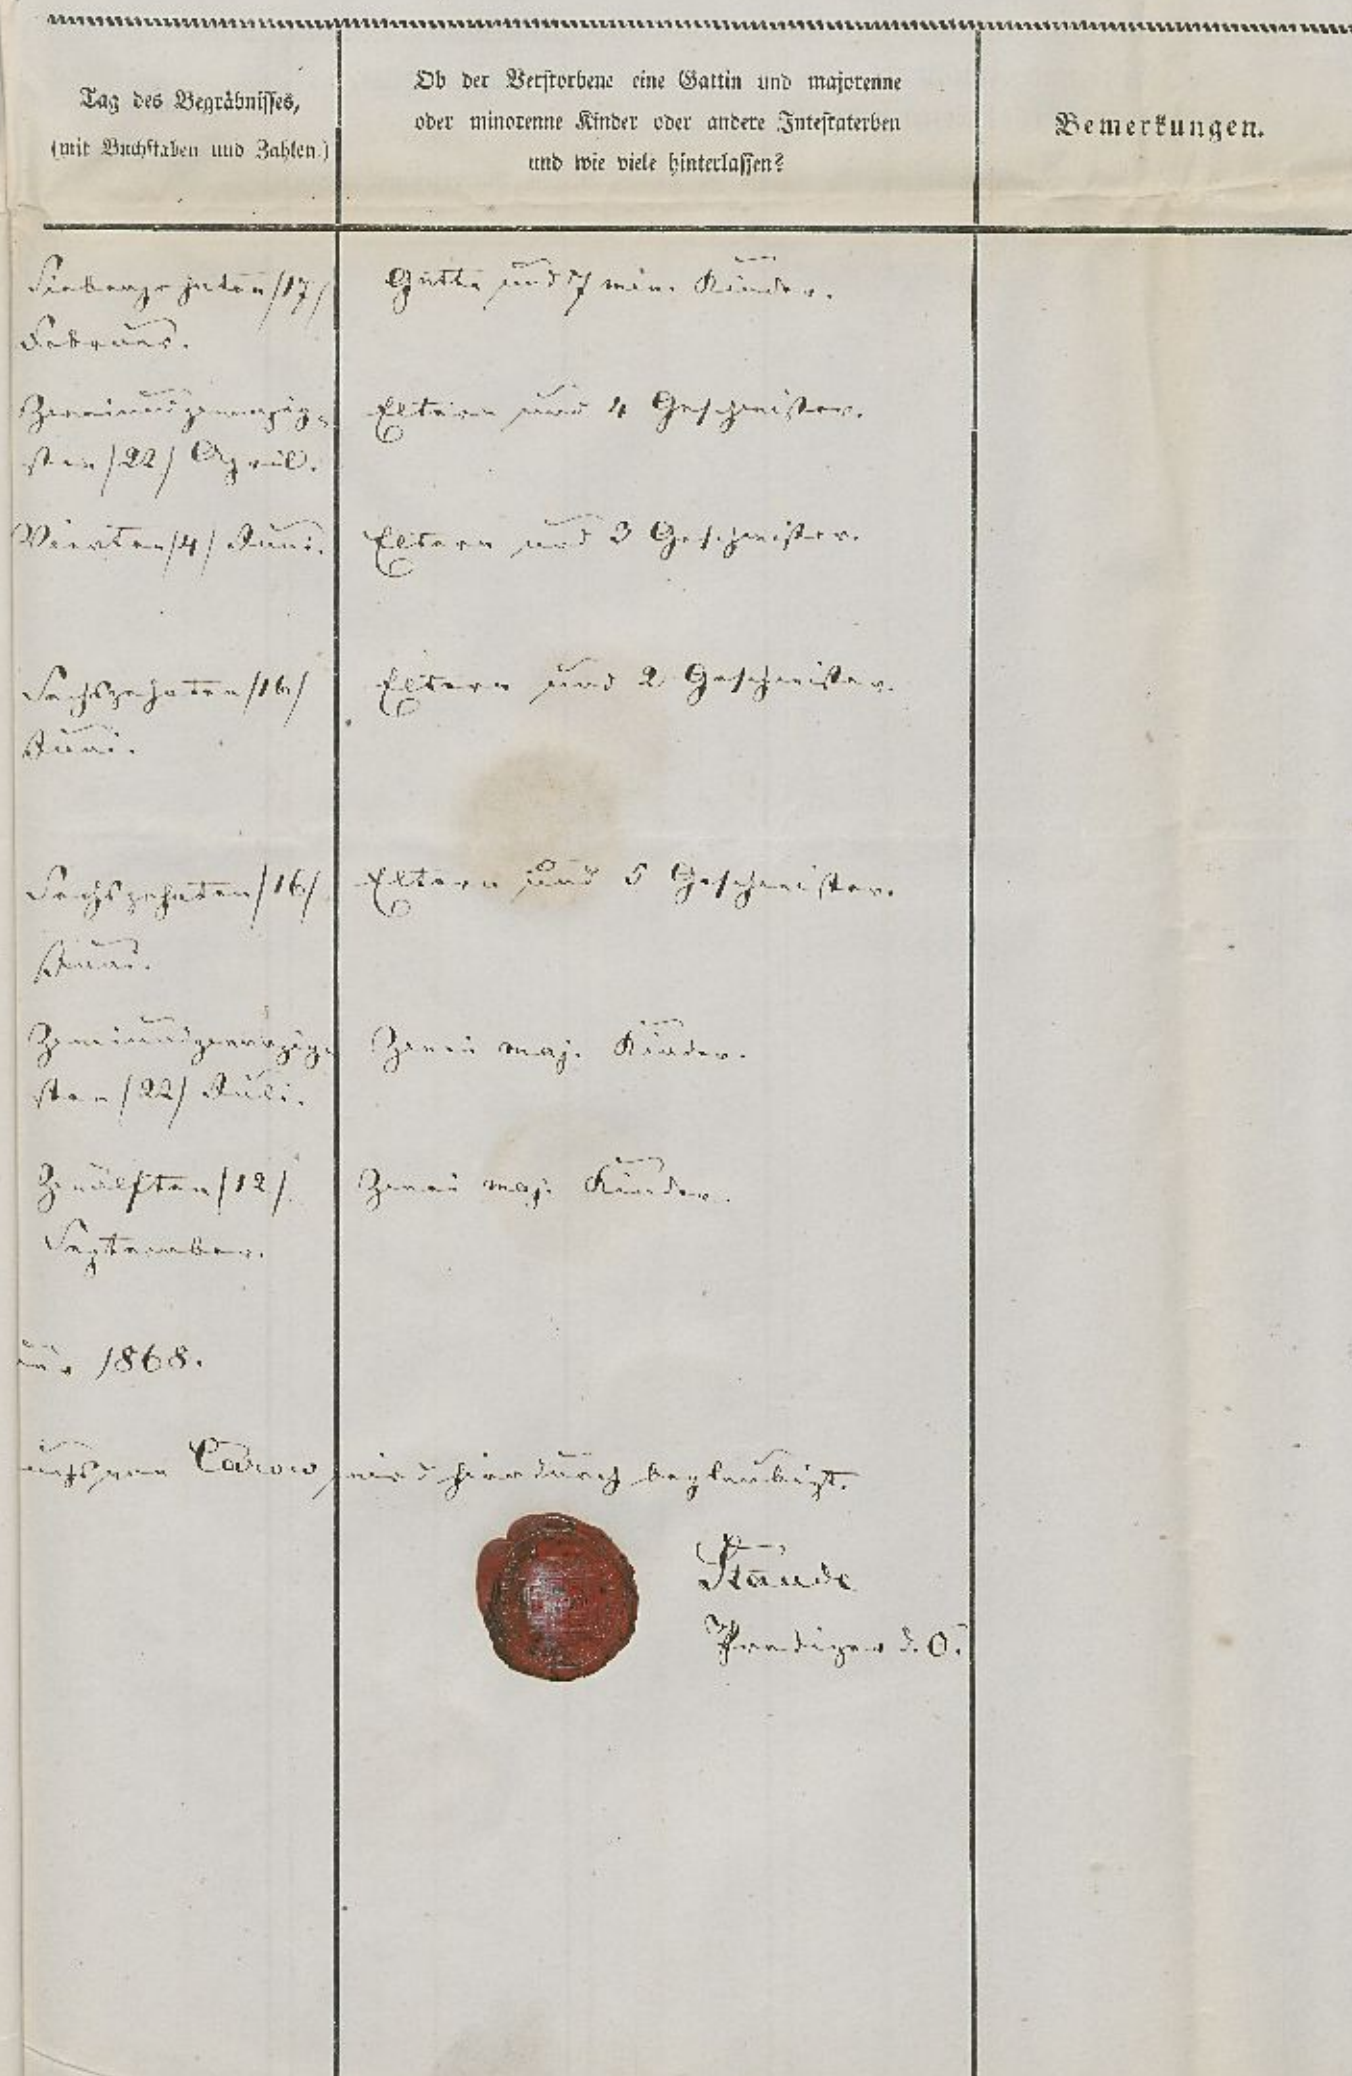 Tag des Begräbnisses,
(mit Buchstaben und Zahlen.)
Ob der Verstorbene eine Gattin und majorenne
oder minorenne Kinder oder andere Intestaterben
und wie viele hinterlassen?
Bemerkungen.
Siebenzehnten /17/
Februar.
Gatte und 7 min. Kinder.
Zweiundzwanzig-
sten /22/ April.
Eltern und 4 Geschwister.
Vierten /4/ Juni.
Eltern und 3 Geschwister.
Sechszehnten /16/
Juni.
Eltern und 2 Geschwister.
Sechszehnten /16/
Juni.
Eltern und 5 Geschwister.
Zweiundzwanzig-
sten /22/ Juli.
Zwei maj. Kinder.
Zwölften /12/
September.
Zwei maj. Kinder.
1868.
von Carow, wird hierdurch beglaubigt.
Staude
Prediger d. O.